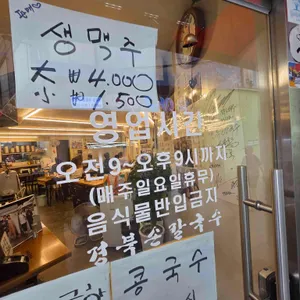 생맥주
大 4.000
小 1.500
영업시간
오전9~오후9시까지
(매주일요일휴무)
음식물반입금지
경북손칼국수
콩국수